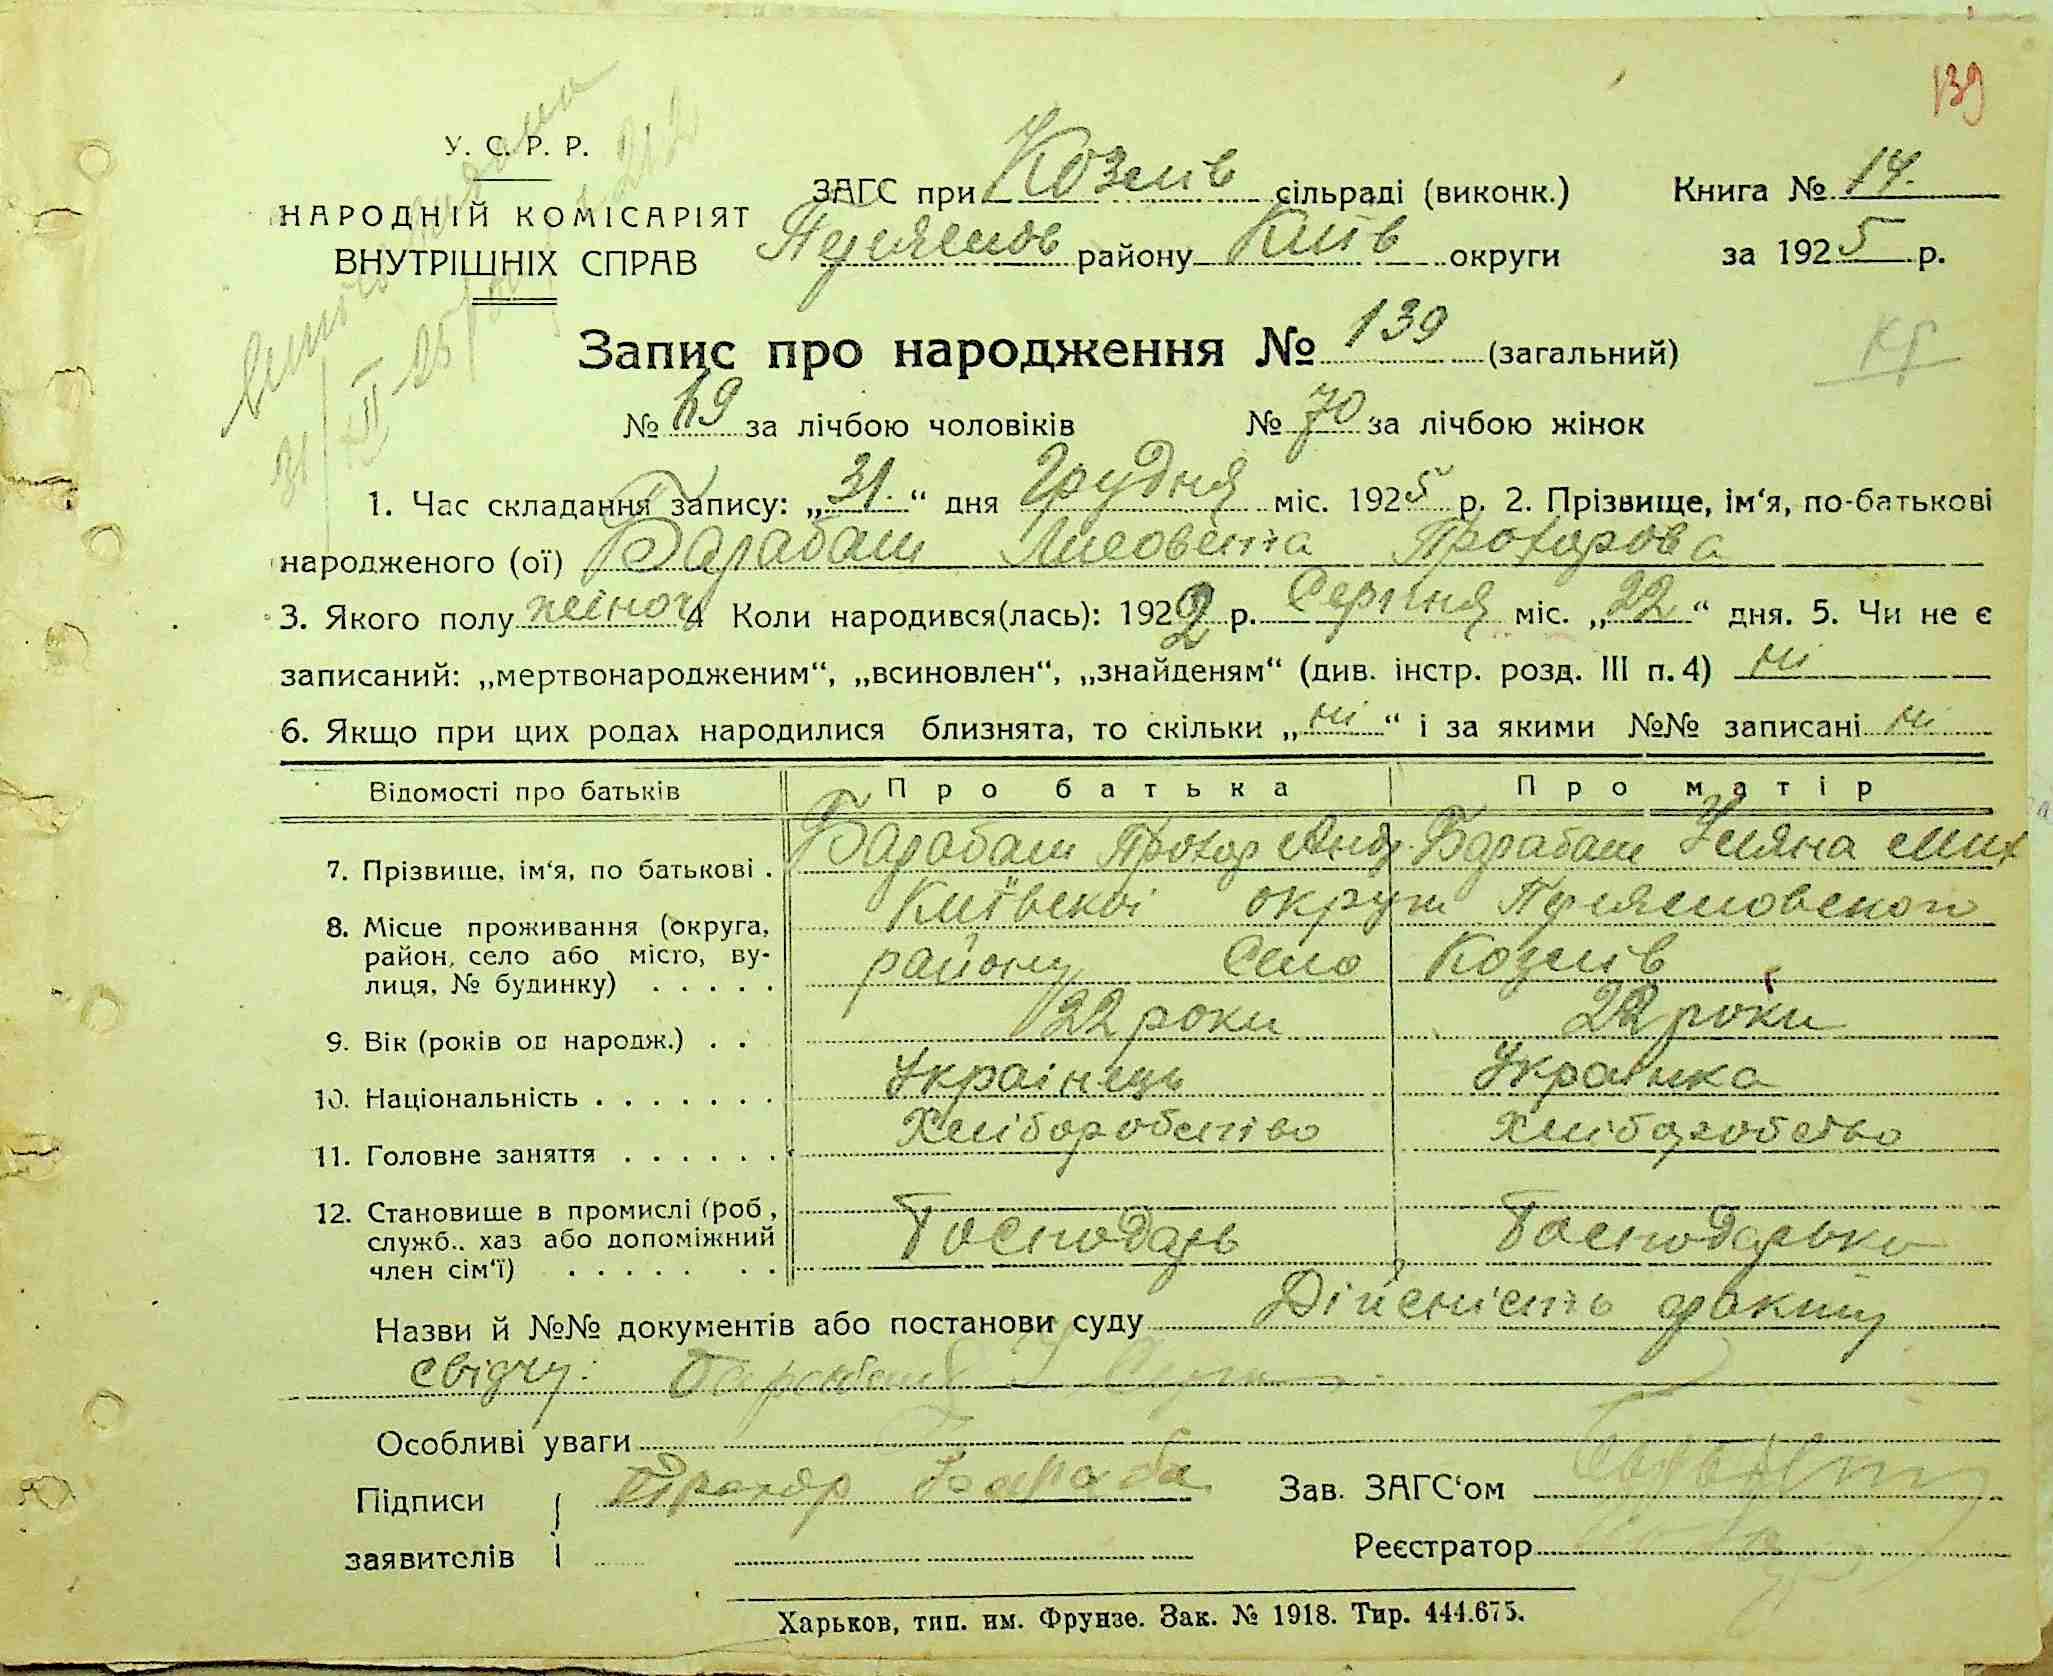 139
У. С. Р. Р.
НАРОДНІЙ КОМІСАРІЯТ
ВНУТРІШНІХ СПРАВ
ЗАГС при Козлів сільраді (виконк.) Книга № 14.
Переяслов району Київ округи за 1925 р.
Запис про народження № 139 (загальний)
№ 69 за лічбою чоловіків № 70 за лічбою жінок
31/XII 25
1. Час складання запису: „31.“ дня Грудня міс. 1925 р. 2. Прізвище, ім‘я, по-батькові
народженого (ої) Барабаш Лисовета Прохорова
3. Якого полу жіноч 4 Коли народився(лась): 1922 р. Серпня міс. „22“ дня. 5. Чи не є
записаний: „мертвонародженим“, „всиновлен“, „знайденям“ (див. інстр. розд. III п. 4) ні
6. Якщо при цих родах народилися близнята, то скільки „ні“ і за якими №№ записані ні
Відомості про батьків Про батька Про матір
7. Прізвище, ім‘я, по батькові . Барабаш Прохор Андр. Барабаш Уляна Мих
8. Місце проживання (округа, Київської округи Переясловского
район, село або місто, ву- району Село Козлів
лиця, № будинку) . . . . .
9. Вік (років од народж.) . . 22 роки 22 роки
10. Національність . . . . . . . Українець Українка
11. Головне заняття . . . . . . Хліборобство Хліборобство
12. Становище в промислі (роб.,
служб., хаз або допоміжний Господарь Господарька
член сім‘ї) . . . . . . .
Назви й №№ документів або постанови суду Дійсність факту
свідчу:
Особливі уваги
Підписи Прохор Бараба Зав. ЗАГС‘ом
заявителів Реєстратор
Харьков, тип. им. Фрунзе. Зак. № 1918. Тир. 444.675.